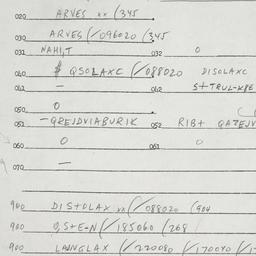 020 ARVES xx (345
030 ARVES (/096020 (345
031 NAHIT 032 0
040 $ QSOLAXC (/088020 DISOLAXC
041 — 042 S++TRUL-XBE
050 0
051 —QREJDVIABURIK 052 RIB+ QATEJV
060 0 061 0
070 —
900 DIS+OLAX xx (/088020 (904
900 QS+E-N (/185060 (268
900 LAWNGLAX (/220080 (/170040